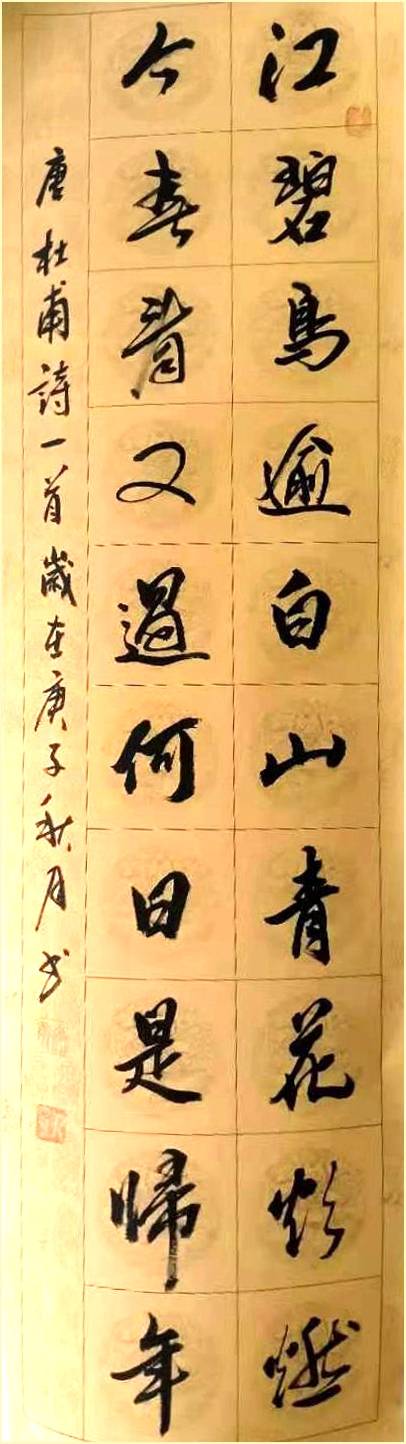 江碧鳥逾白山青花欲燃
今春看又過何日是歸年
唐杜甫詩一首歲在庚子秋月书